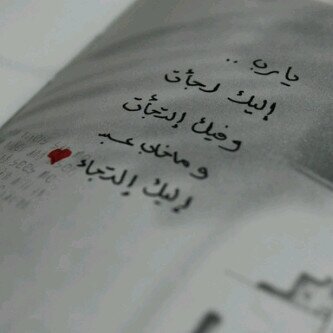 يارب ..
إليك لجأت
وفيك إلتجأت
وماخاب عبد
إليك إلتجاء